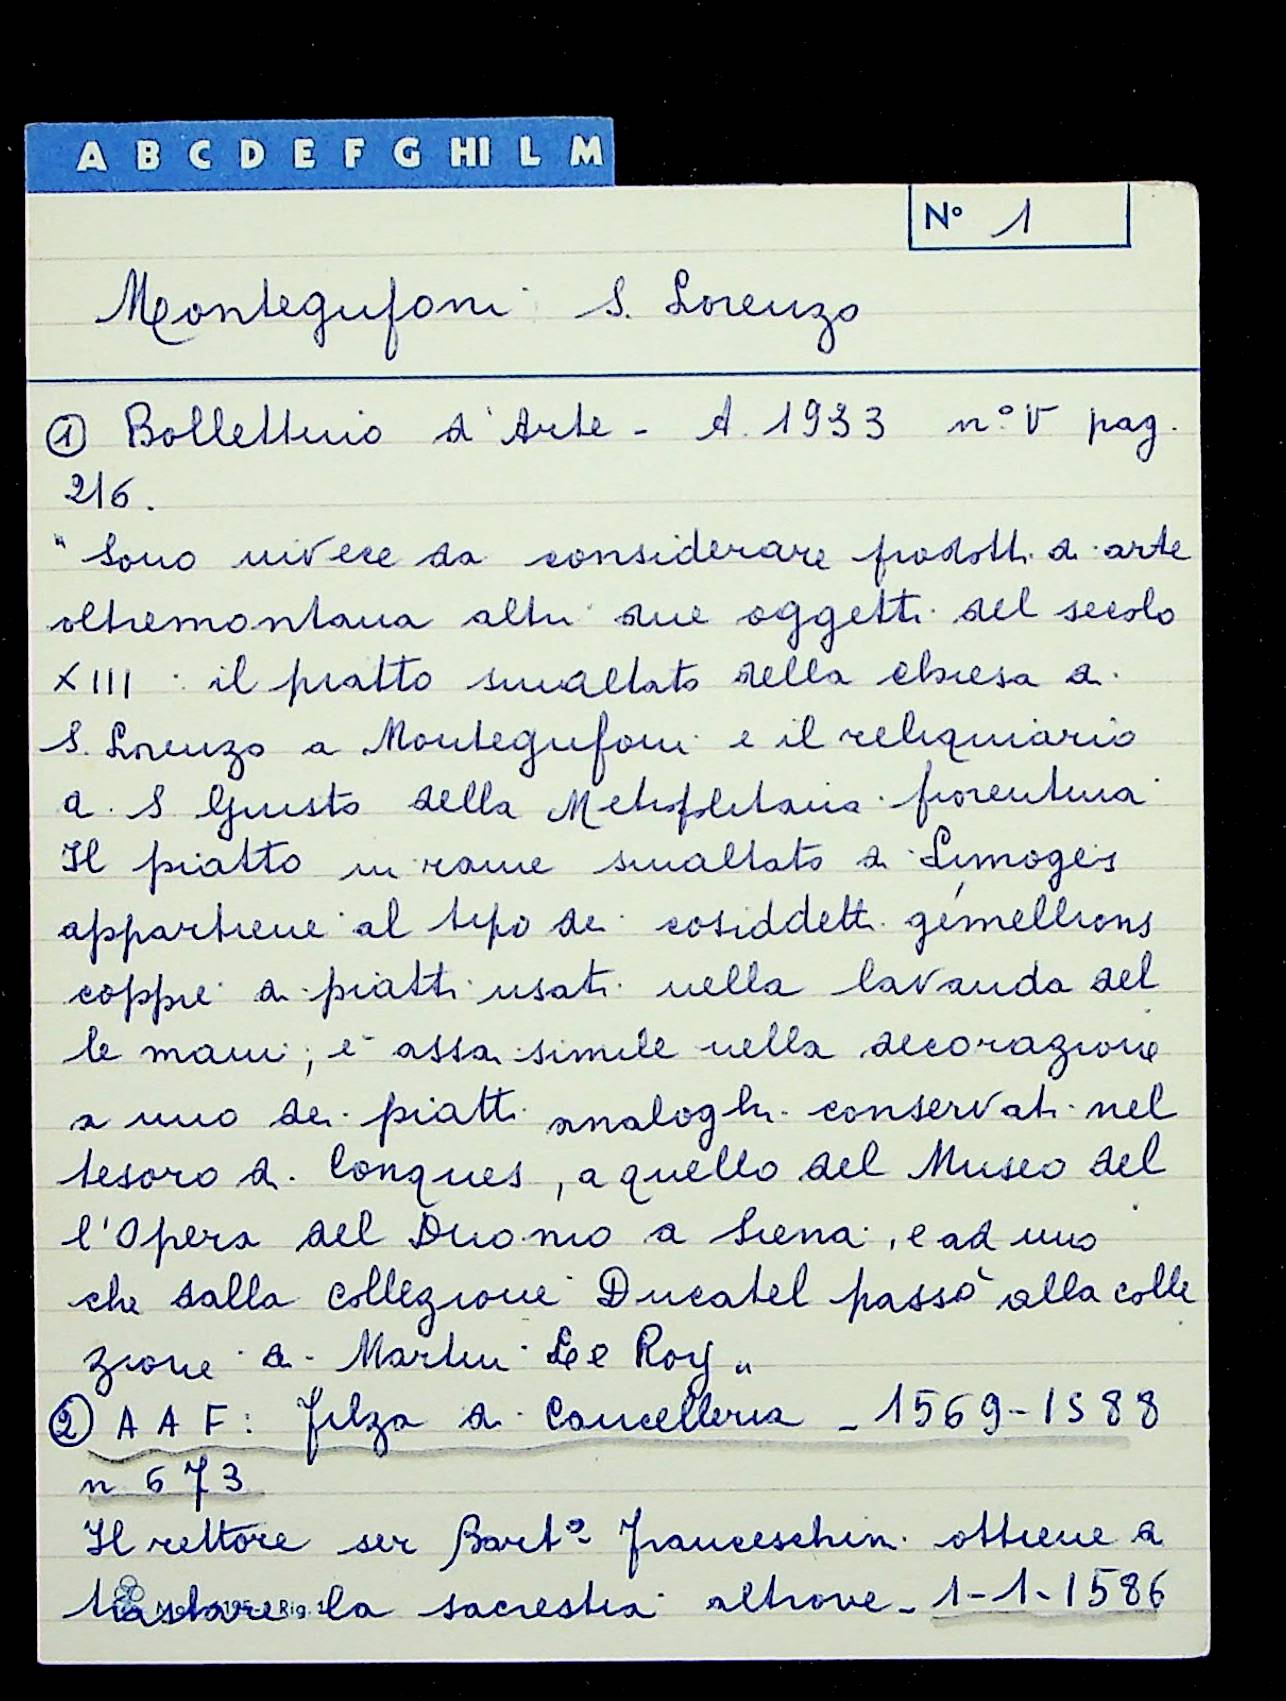 A B C D E F G HI L M
N° 1
Montegufoni S. Lorenzo
① Bollettino d'Arte - A. 1933 n° V pag.
216.
"Sono invece da considerare prodotti di arte
oltremontana altri due oggetti del secolo
XIII : il piatto smaltato della chiesa di
S. Lorenzo a Montegufoni e il reliquiario
di S Giusto della Metropolitana fiorentina
Il piatto in rame smaltato di Limoges
appartiene al tipo dei cosiddetti gémellions
coppie di piatti usati nella lavanda del
le mani; è assai simile nella decorazione
a uno dei piatti analoghi conservati nel
tesoro di Conques, a quello del Museo del
l'Opera del Duomo a Siena, e ad uno
che dalla collezione Ducatel passò alla colle
zione di Martin Le Roy"
② A A F: Filza di Cancelleria - 1569-1588
n 673
Il rettore ser Bart° Franceschini ottiene di
traslare la sacrestia altrove - 1-1-1586